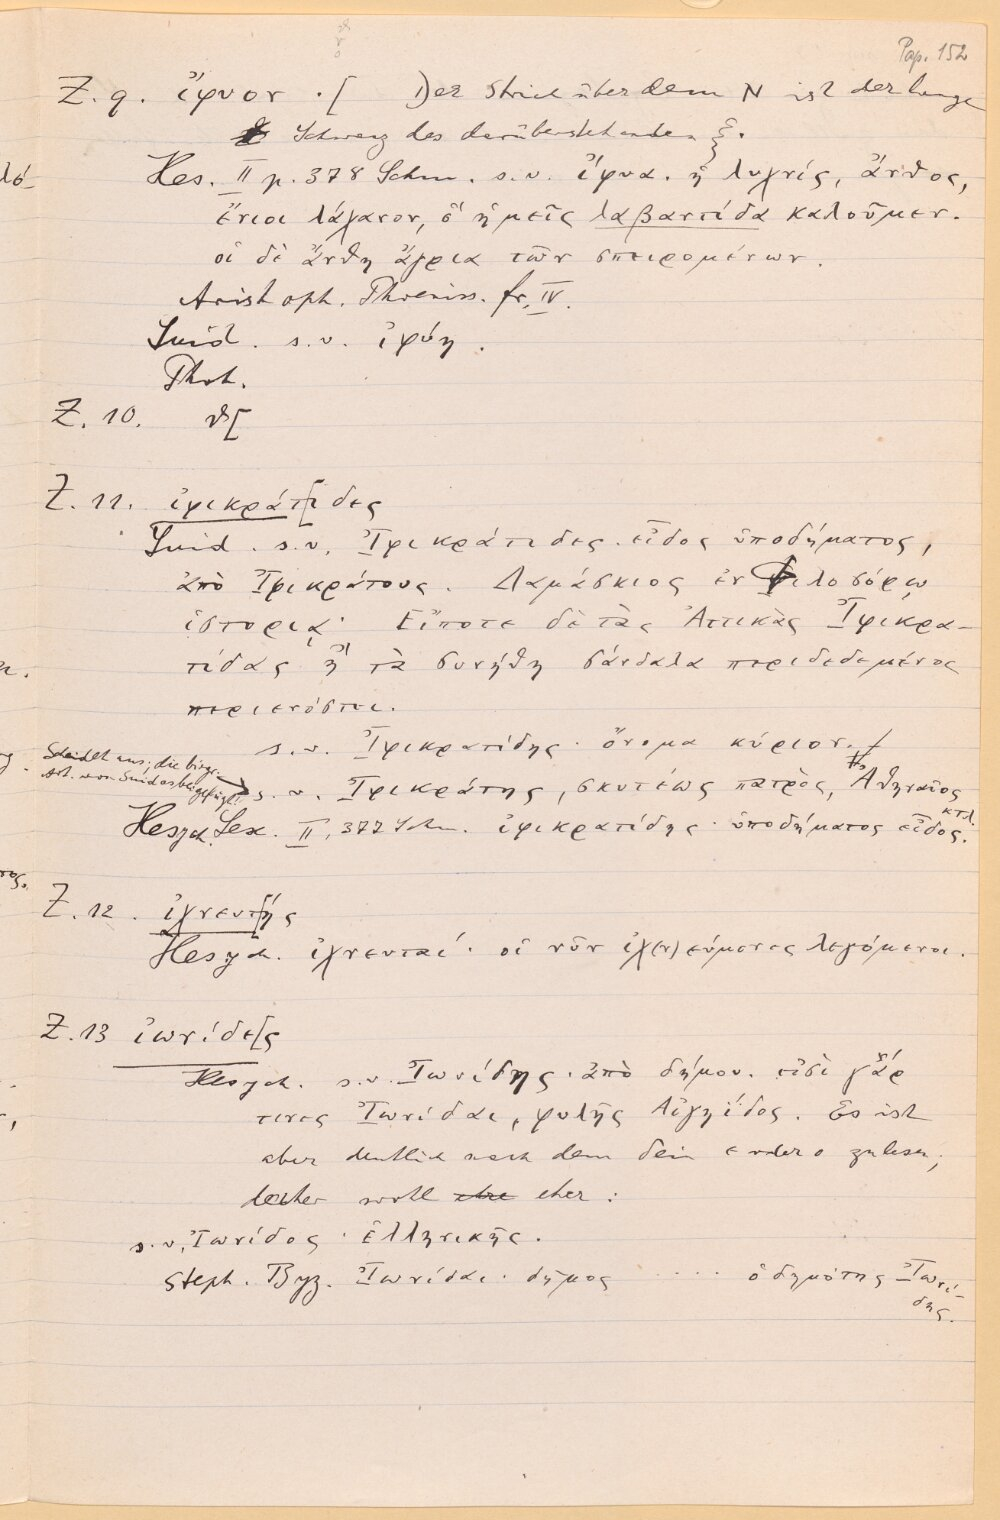 Pap. 152
Z. 9. ἴφυον ·[ Der Strich über dem N ist der lange
Schwanz des darüberstehenden ξ.
Hes. II p. 378 Schm. s.v. ἴφυα. ἢ λυχνίς, ἄνθος,
ἔνιοι λάχανον, ὃ ἡμεῖς λαβαντίδα καλοῦμεν.
οἱ δὲ ἄνθη ἄγρια τῶν σπειρομένων.
Aristoph. Phoeniss. fr. IV.
Suid. s.v. ἰφύη.
Phot.
Z. 10. θ[
Z. 11. ἰφικράτ[ι]δες
Suid. s.v. Ἰφικράτιδες· εἶδος ὑποδήματος,
ἀπὸ Ἰφικράτους. Δαμάσκιος ἐν Φιλοσόφῳ
ἱστορίᾳ· Εἴποτε δὲ τὰς Ἀττικὰς Ἰφικρα-
τίδας ἢ τὰ συνήθη σάνδαλα περιδεδεμένος
περιενόστει.
s.v. Ἰφικρατίδης· ὄνομα κύριον.
s.v. Ἰφικράτης, σκυτέως πατρὸς, Ἀθηναῖος
κτλ.
Hesych. Lex. II, 377 Schm. ἰφικρατίδης· ὑποδήματος εἶδος.
Z. 12. ἰχνευτ[ή]ς
Hesych. ἰχνευταί· οἱ νῦν ἰχ(ν)εύμονες λεγόμενοι.
Z. 13 ἰωνίδε[ς
Hesych. s.v. Ἰωνίδης· ἀπὸ δήμου. εἰσὶ γάρ
τινες Ἰωνίδαι, φυλῆς Αἰγηίδος. Es ist
aber deutlich nach dem δ ein ε zu lesen;
daher wohl eher:
s.v. Ἰωνίδος· ἑλληνικῆς.
Steph. Byz. Ἰωνίδαι· δῆμος .... ὁ δημότης Ἰωνί-
δης.